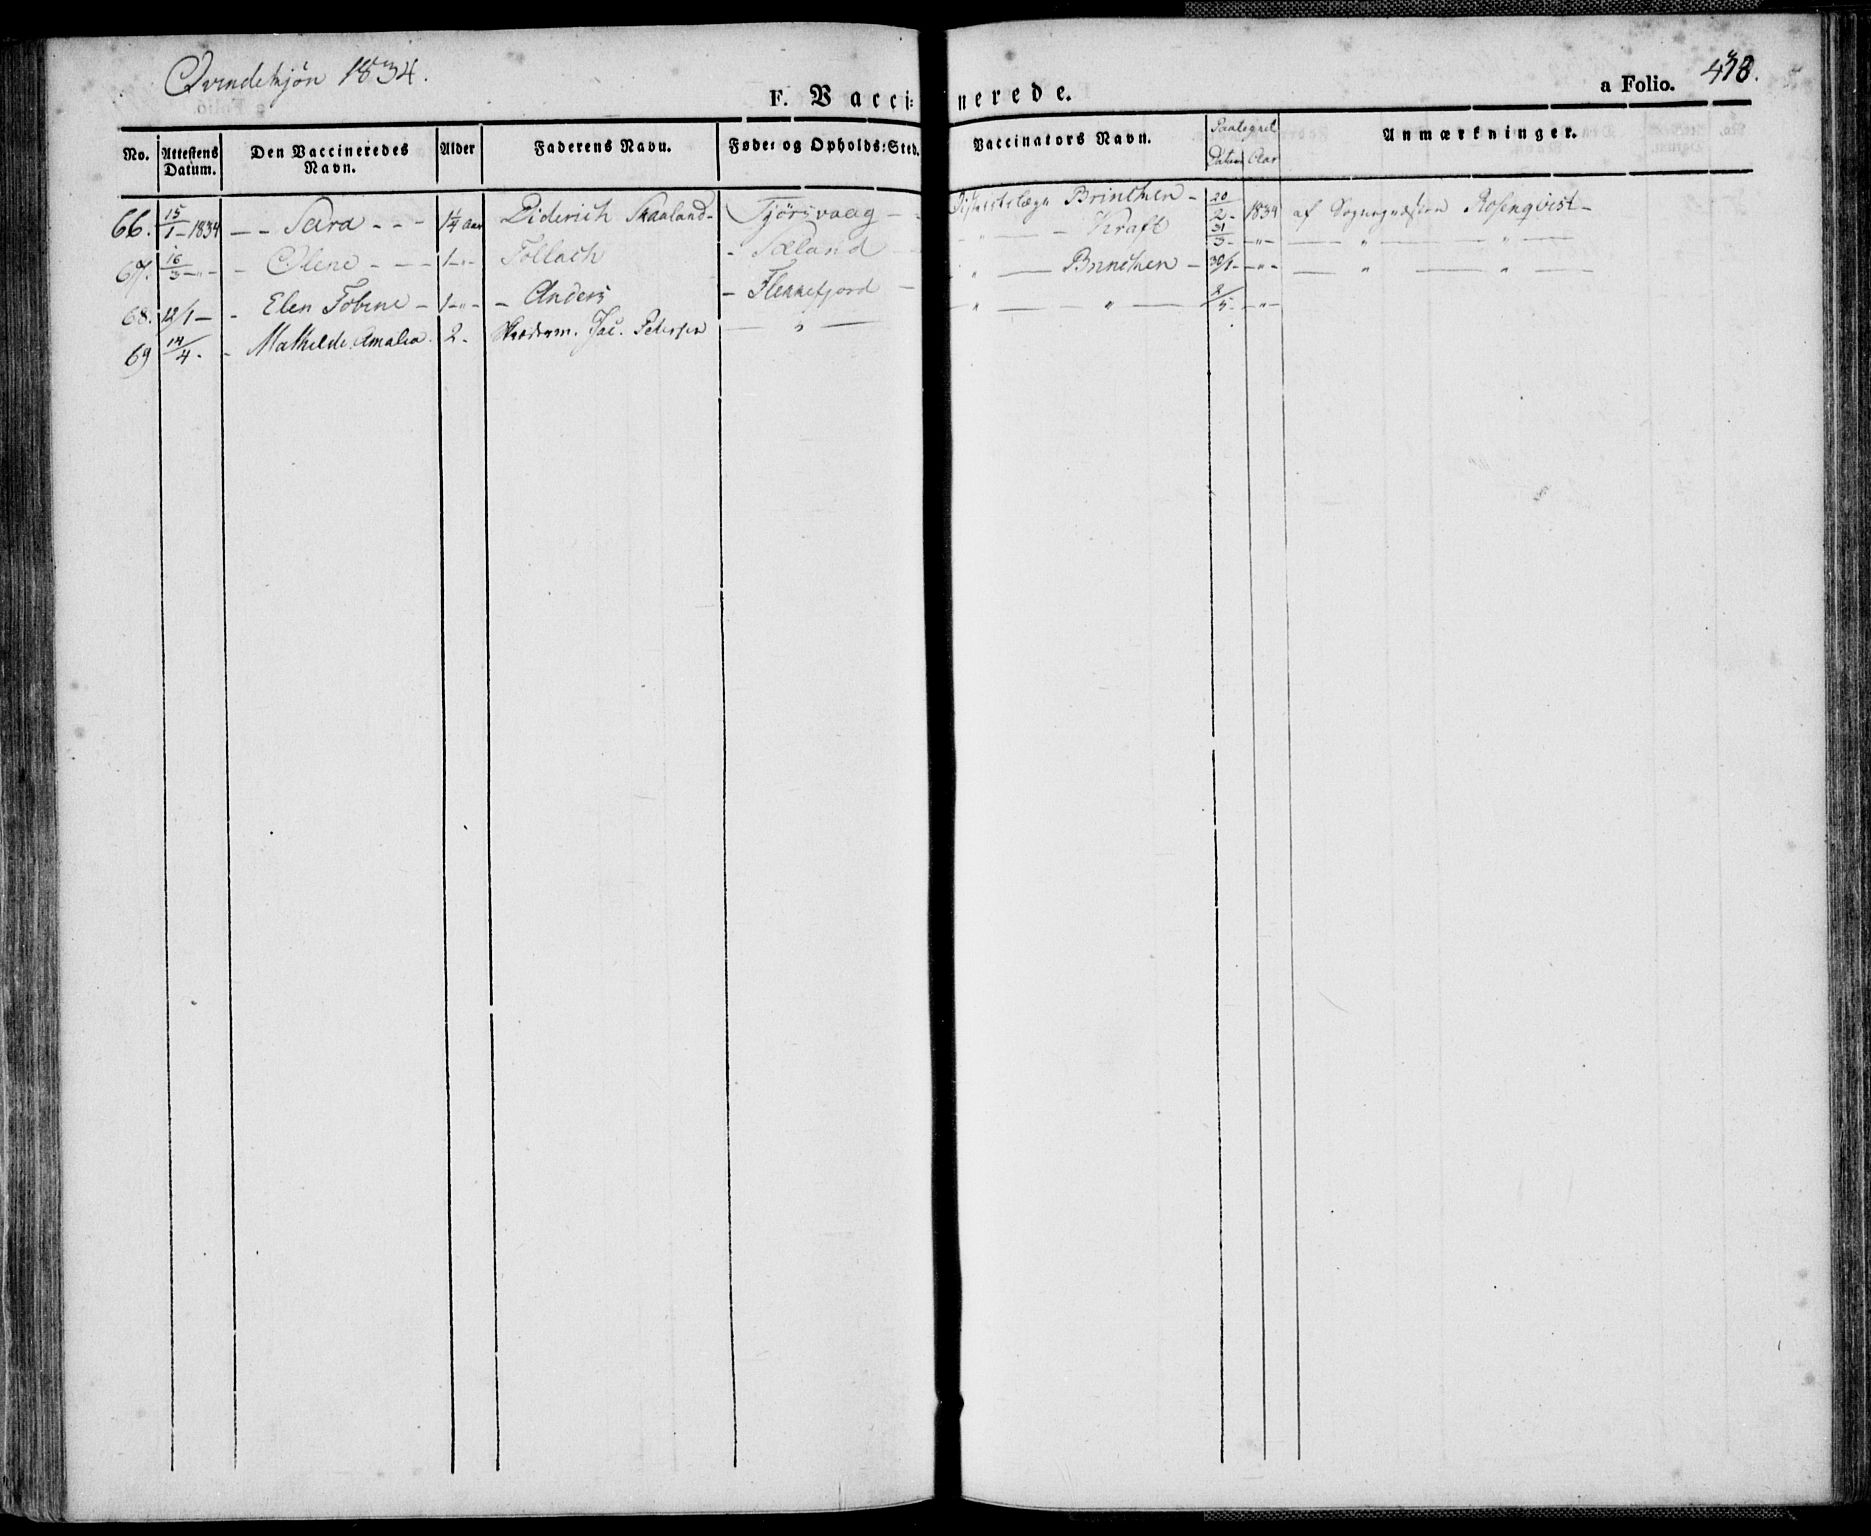 Qvindekjön 1834.
F. Vaccinerede.
a Folio. 418.
No. Attestens Datum. Den Vaccineredes Navn. Alder Faderens Navn. Føde- og Opholds-Sted. Vaccinators Navn. Paategnet Datum Aar Anmærkninger.
66. 15/1 - 1834 - - Sara - - - 1 1/4 Aar Diderich Skaaland - Tjörsvaag - - Districtslæge Brinchen - 20/2 - 1834 af Sognepræsten Rosenqvist -
67. 16/3 - " - - Olene - - - 1 - " - Tollach - Sæland - " - - Kraft 31/3 - - " - - " - " -
68. 12/1 - - Elen Tobine - 1 - " - - Anders - Flekkefjord - " - Brinchen - 30/1 - - " - - " - " -
69 14/4 - - Mathilde Amalia 2 - Jac. Petersen - " - " " 8/5 - - " -